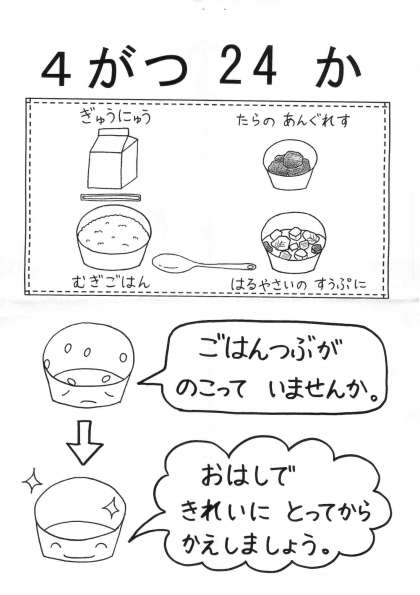 4がつ 24 か
ぎゅうにゅう
たらの あんぐれす
むぎごはん
はるやさいの すうぷに
ごはんつぶが
のこって いませんか。
おはしで
きれいに とってから
かえしましょう。